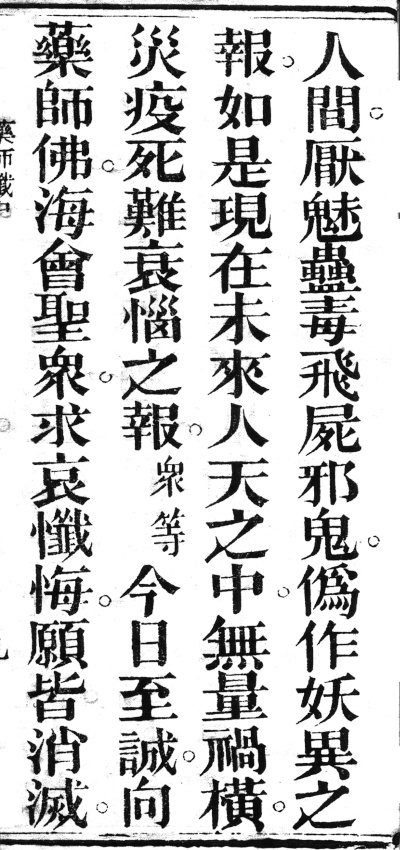 人間。厭魅蠱毒飛屍邪鬼。僞作妖異之
報。如是現在未來人天之中。無量禍橫。
災疫死難衰惱之報。衆等今日至誠。向
藥師佛。海會聖衆。求哀懺悔。願皆消滅。
藥師懺中